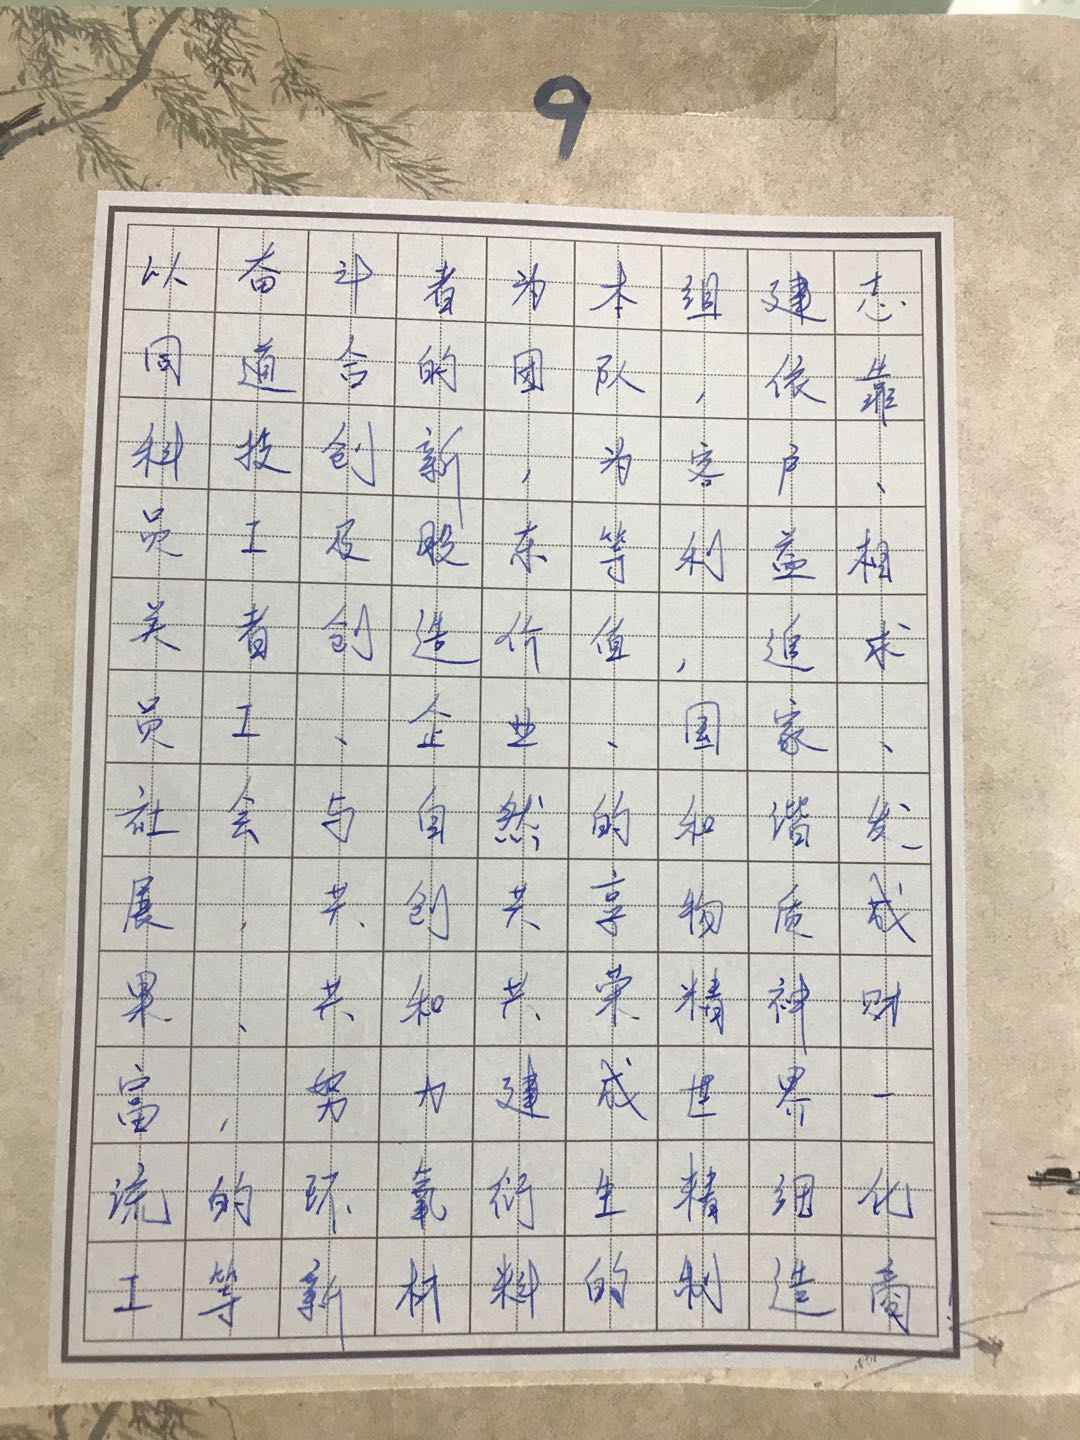 9
以奋斗者为本组建志
同道合的团队，依靠
科技创新，为客户、
员工及股东等利益相
关者创造价值，追求
员工、企业、国家、
社会与自然的和谐发
展，共创共享物质成
果、共和共荣精神财
富，努力建成世界一
流的环氧衍生精细化
工等新材料的制造商